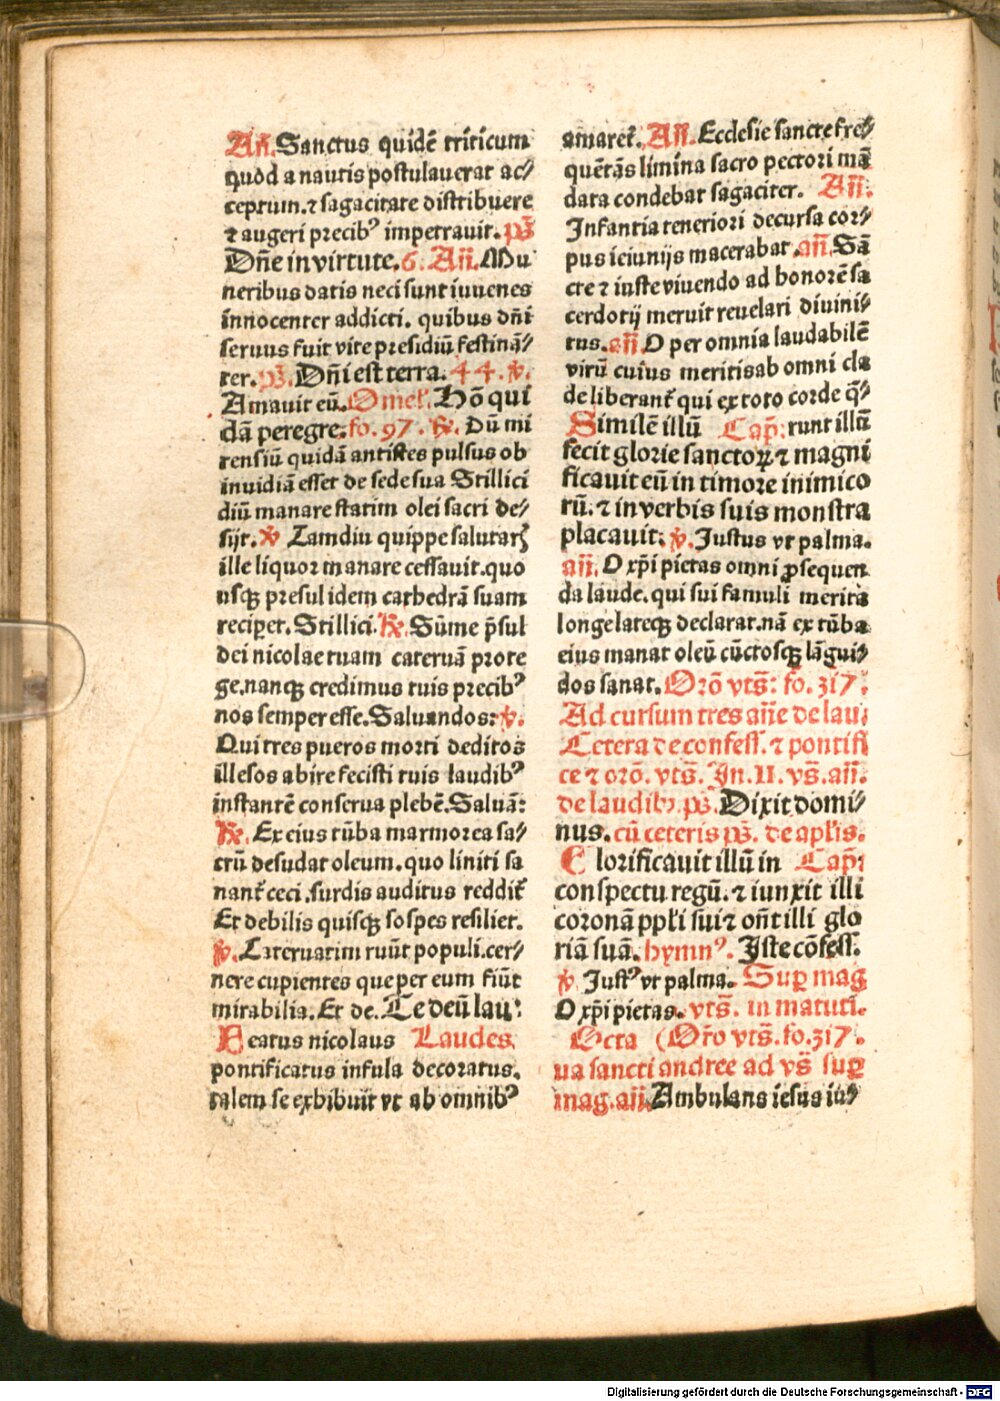 Añ. Sanctus quidē triticum
quod a nautis postulauerat ac⸗
ceptum. ⁊ sagacitate distribuere
⁊ augeri precibꝰ impetrauit. ps̄
Dn̄e in virtute. 6. Añ. Mu
neribus datis neci sunt iuuenes
innocenter addicti. quibus dn̄i
seruus fuit vite presidiū festinā⸗
ter. ps̄. Dn̄i est terra. 44. ℣.
Amauit eū. Omel'. Hō qui
dā peregre. fo. 97. ℟. Dū mi
tensiū quidā antistes pulsus ob
inuidiā esset de sede sua Stillici
diū manare statim olei sacri de⸗
sijt. ℣ Tamdiu quippe salutarꝭ
ille liquor manare cessauit. quo
usqꝫ presul idem cathedrā suam
reciperet. Stillici. ℟. Sūme p̄sul
dei nicolae tuam cateruā prote
ge. nanqꝫ credimus tuis precibꝰ
nos semper esse. Saluandos: ℣.
Qui tres pueros morti deditos
illesos abire fecisti tuis laudibꝰ
instantē conserua plebē. Saluā:
℟. Ex eius tūba marmorea sa⸗
crū desudat oleum. quo liniti sa
nanť ceci. surdis auditus reddiť
Et debilis quisqꝫ sospes resiliet.
℣. Cateruatim ruūt populi. cer⸗
nere cupientes que per eum fiūt
mirabilia. Et de. Te deū lau:
Beatus nicolaus Laudes
pontificatus infula decoratus.
talem se exhibuit vt ab omnibꝰ
amareť. Añ. Ecclesie sancte fre⸗
quētās limina sacro pectori mā
data condebat sagaciter. Añ.
Infantia teneriori decursa cor⸗
pus ieiunijs macerabat. añ. Sā
cte ⁊ iuste viuendo ad honorē sa
cerdotij meruit reuelari diuini⸗
tus. añ. O per omnia laudabilē
virū cuius meritis ab omni cla
de liberanť qui ex toto corde q̄⸗
Similē illū Cap̄: runt illū
fecit glorie sanctoꝝ ⁊ magni
ficauit eū in timore inimico
rū. ⁊ in verbis suis monstra
placauit. ℣. Justus vt palma.
añ. O xp̄i pietas omni ꝓsequen
da laude. qui sui famuli merita
longe lateqꝫ declarat. nā ex tūba
eius manat oleū cūctosqꝫ lāgui⸗
dos sanat. Orō vts̄: fo. 317.
Ad cursum tres añe de lau:
Cetera de confess. ⁊ pontifi
ce ⁊ orō. vts̄. In. II. vs̄. añ.
de laudibꝰ. ps̄. Dixit domi⸗
nus. cū ceteris ps̄. de apl'is.
Glorificauit illū in Cap̄:
conspectu regū. ⁊ iunxit illi
coronā ppl'i sui ⁊ on̄t illi glo
riā suā. hymnꝰ. Iste cōfess.
℣ Justꝰ vt palma. Suꝑ mag
O xp̄i pietas. vts̄. in matuti.
Octa (Orō vts̄. fo. 317.
ua sancti andree ad vs̄ suꝑ
mag. añ. Ambulans iesus iu⸗
Digitalisierung gefördert durch die Deutsche Forschungsgemeinschaft - DFG